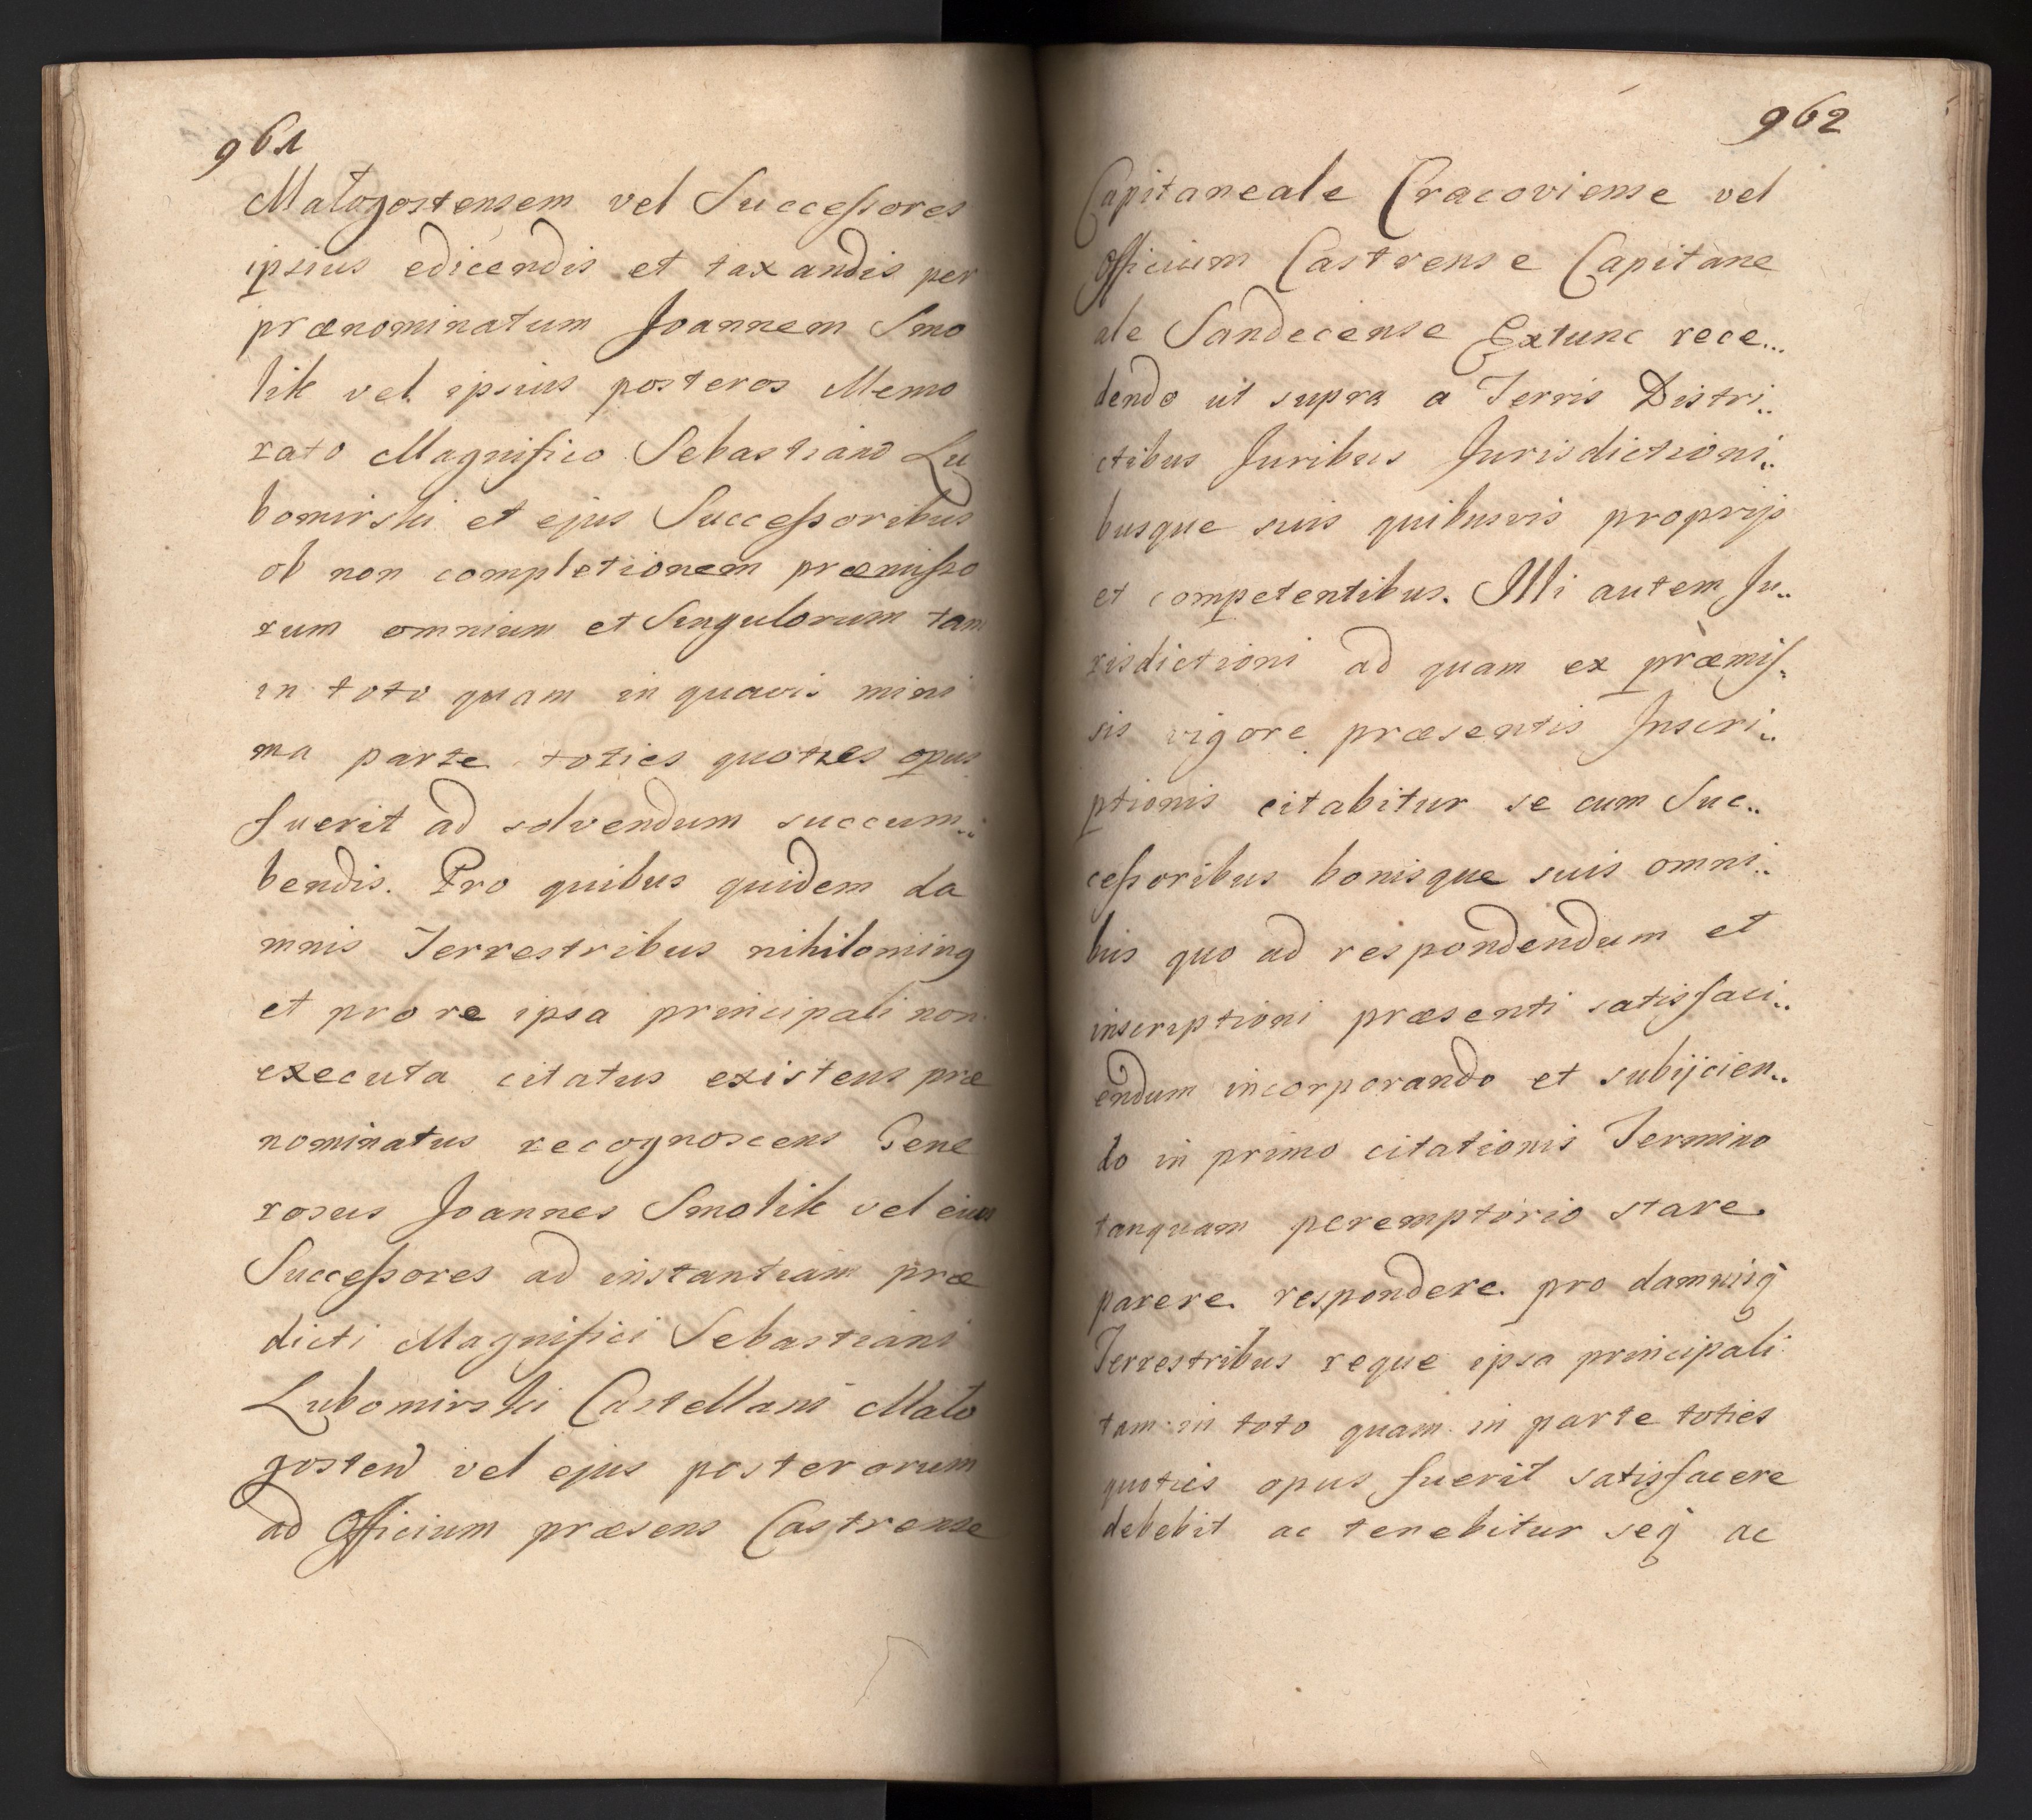 961
Małogostensem vel Successores
ipsius edicendis et taxandis per
prænominatum Joannem Smo
lik vel ipsius posteros Memo
rato Magnifico Sebastiano Lu
bomirski et ejus Successoribus
ob non completionem præmisso
rum omnium et Singulorum tam
in toto quam in quavis mini
ma parte toties quoties opus
fuerit ad solvendum succum..
bendis. Pro quibus quidem da
mnis Terrestribus nihiloming
et pro re ipsa principali non
executa citatus existens præ
nominatus recognoscens Gene
rosus Joannes Smolik vel eius
Successores ad instantiam præ
dicti Magnifici Sebastiani
Lubomirski Castellani Mało
gosten vel ejus posterorum
ad Officium præsens Castrense
962
Capitaneale Cracoviense vel
Officium Castrense Capitane
ale Sandecense Extunc rece...
dendo ut supra a Terris Distri..
ctibus Juribus Jurisdictioni..
busque suis quibusvis proprijs
et competentibus. Illi autem Ju..
risdictioni ad quam ex præmis..
sis vigore præsentis Inscri..
ptionis citabitur se cum Suc..
cessoribus bonisque suis omni..
bus quo ad respondendum et
inscriptioni præsenti satisfaci..
endum incorporando et subijcien..
do in primo citationis Termino
tanquam peremptorio stare
parere respondere pro damnisq
Terrestribus reque ipsa principali
tam in toto quam in parte toties
quoties opus fuerit satisfacere
debebit ac tenebitur seq ac